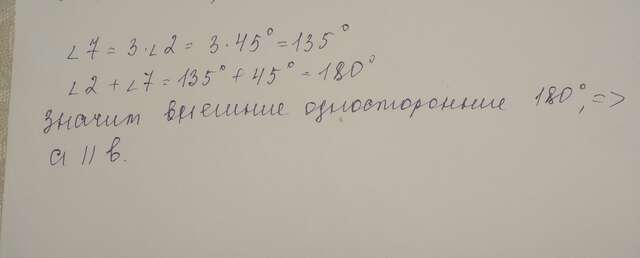 ∠7 = 3·∠2 = 3·45° = 135°
∠2 + ∠7 = 135° + 45° = 180°
Значит внешние односторонние 180°, =>
a || b.